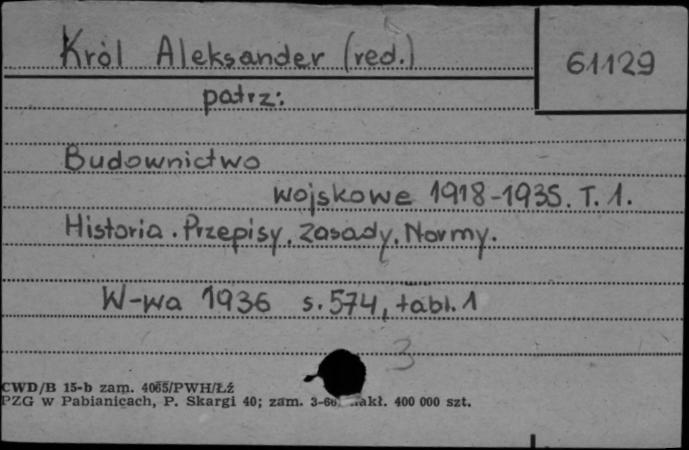 Król Aleksander (red.)
61129
patrz:
Budownictwo
wojskowe 1918-1935. T. 1.
Historia. Przepisy. Zasady. Normy.
W-wa 1936 s. 574, tabl. 1
3
CWD/B 15-b zam. 4065/PWH/Łź
PZG w Pabianicach, P. Skargi 40; zam. 3-66 nakł. 400 000 szt.